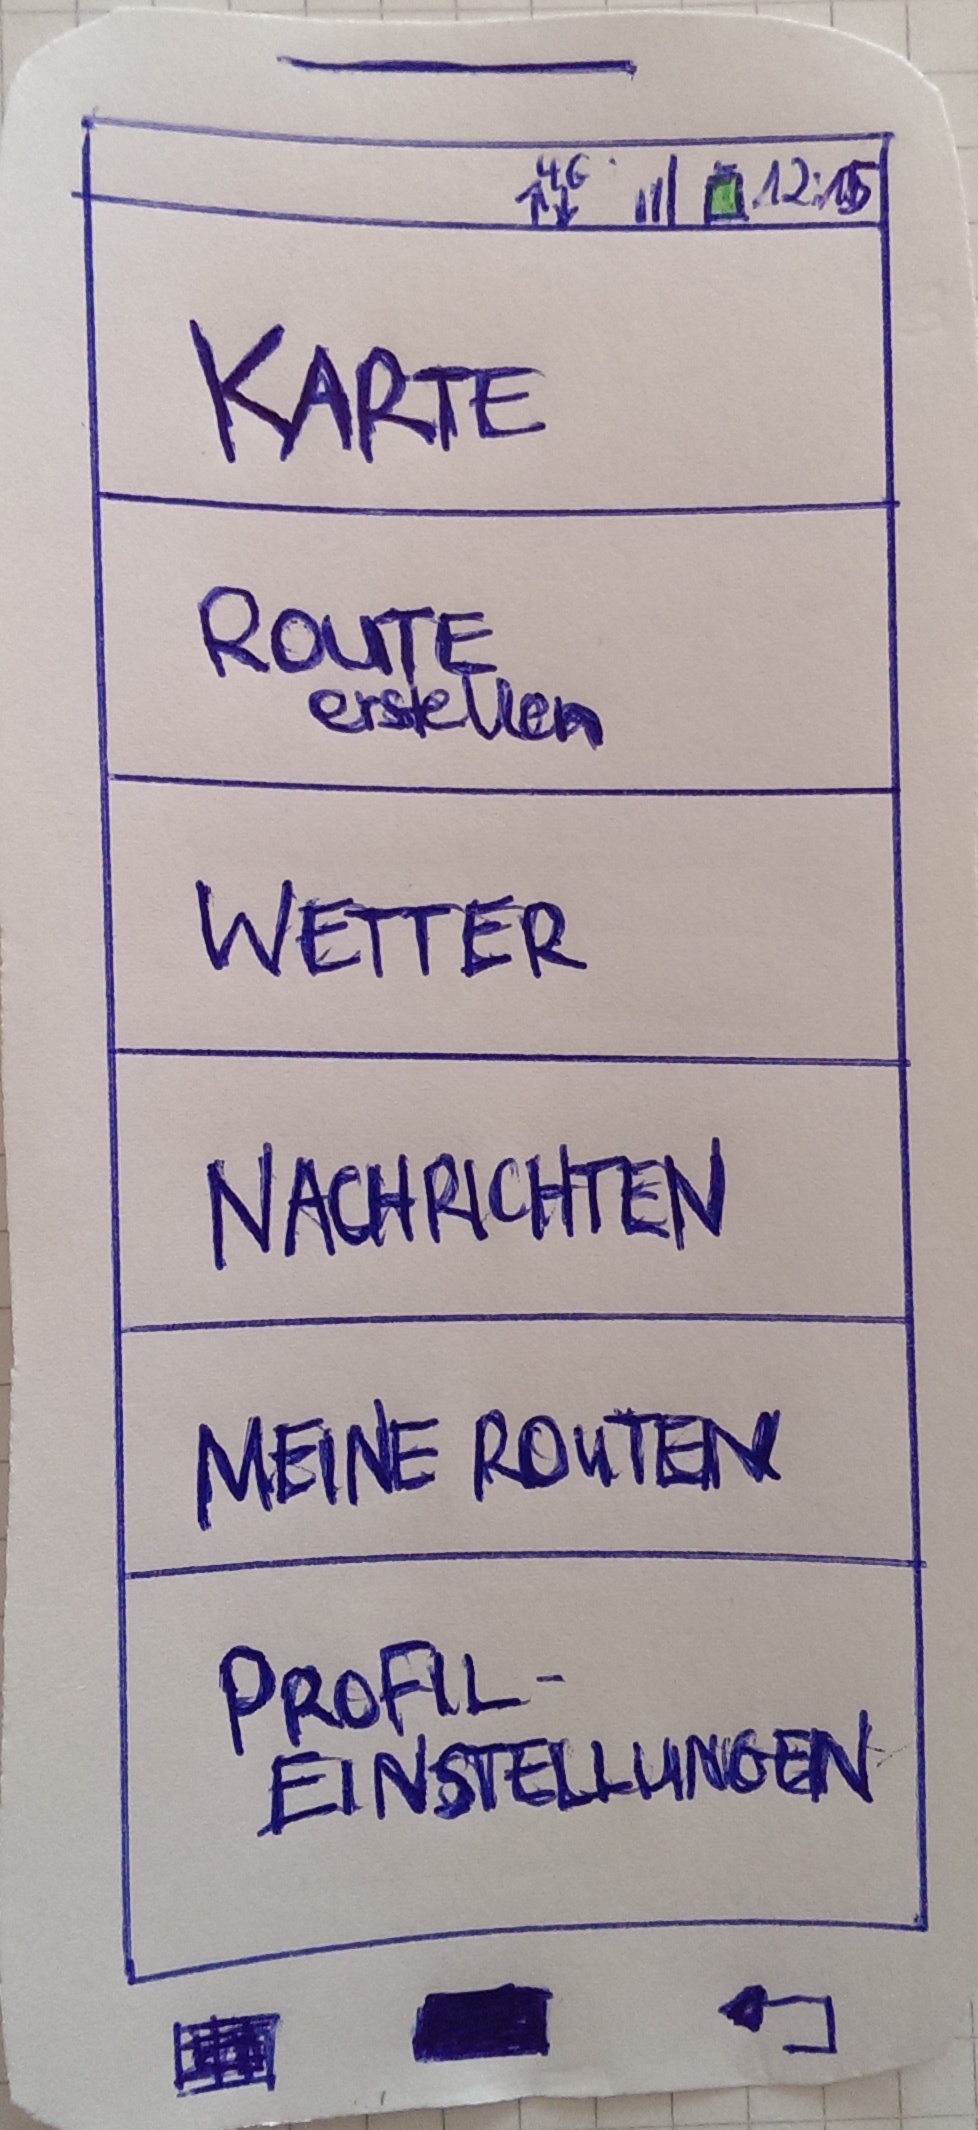 4G 12:15
KARTE
ROUTE
erstellen
WETTER
NACHRICHTEN
MEINE ROUTEN
PROFIL-
EINSTELLUNGEN